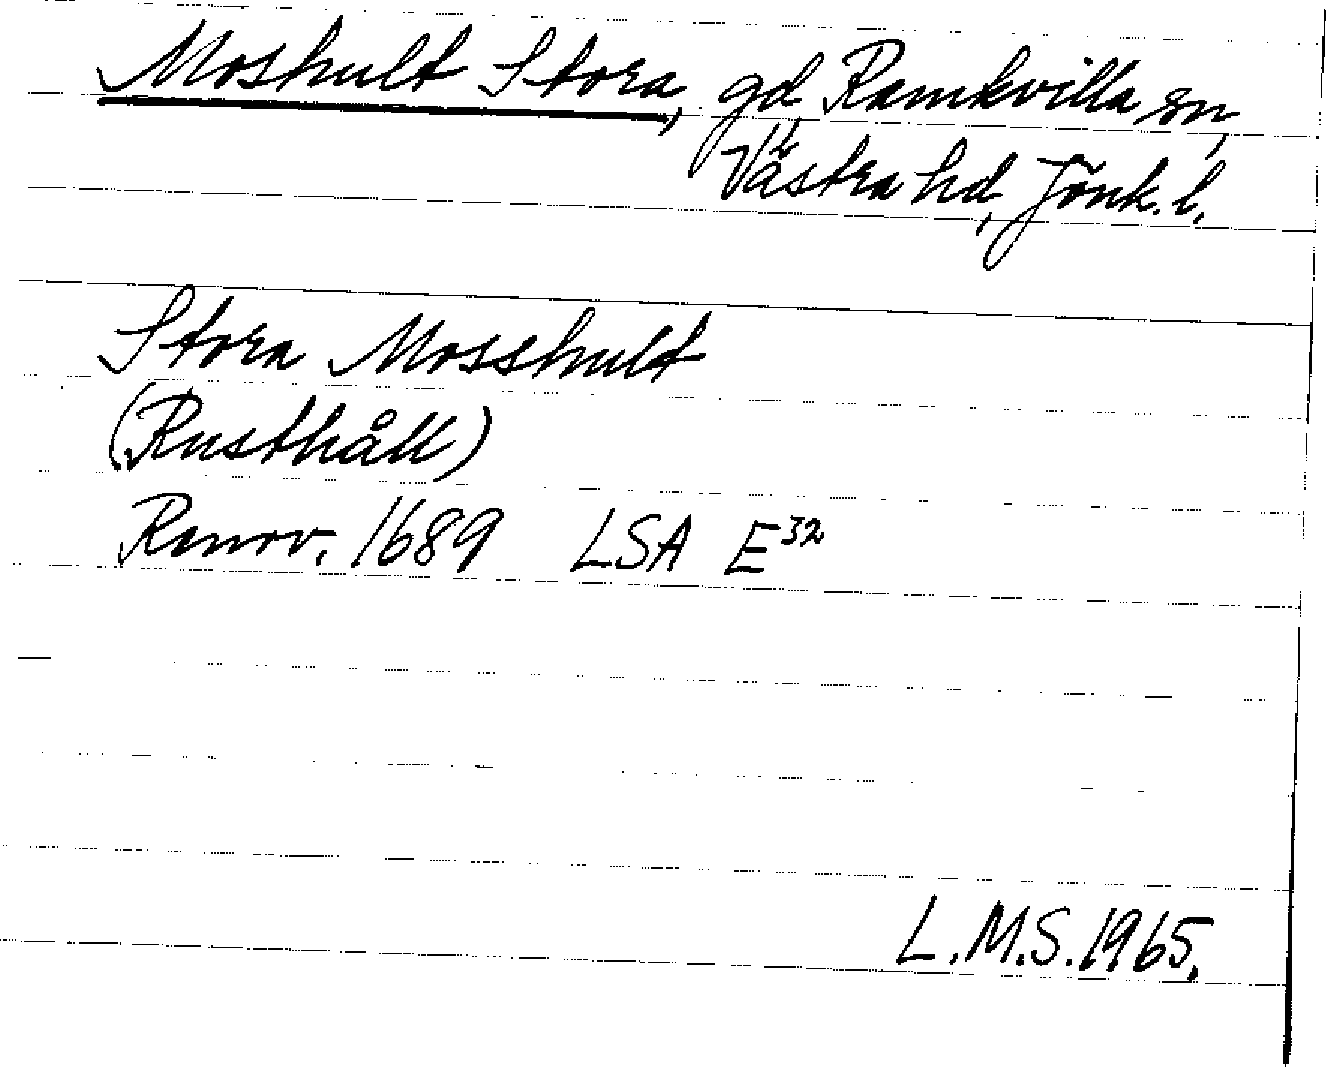 Moshult Stora, gd, Ramkvilla sn,
Västra hd, Jönk. l.
Stora Mosshult
(Rusthåll)
Renov. 1689 LSA E32
L.M.S. 1965.